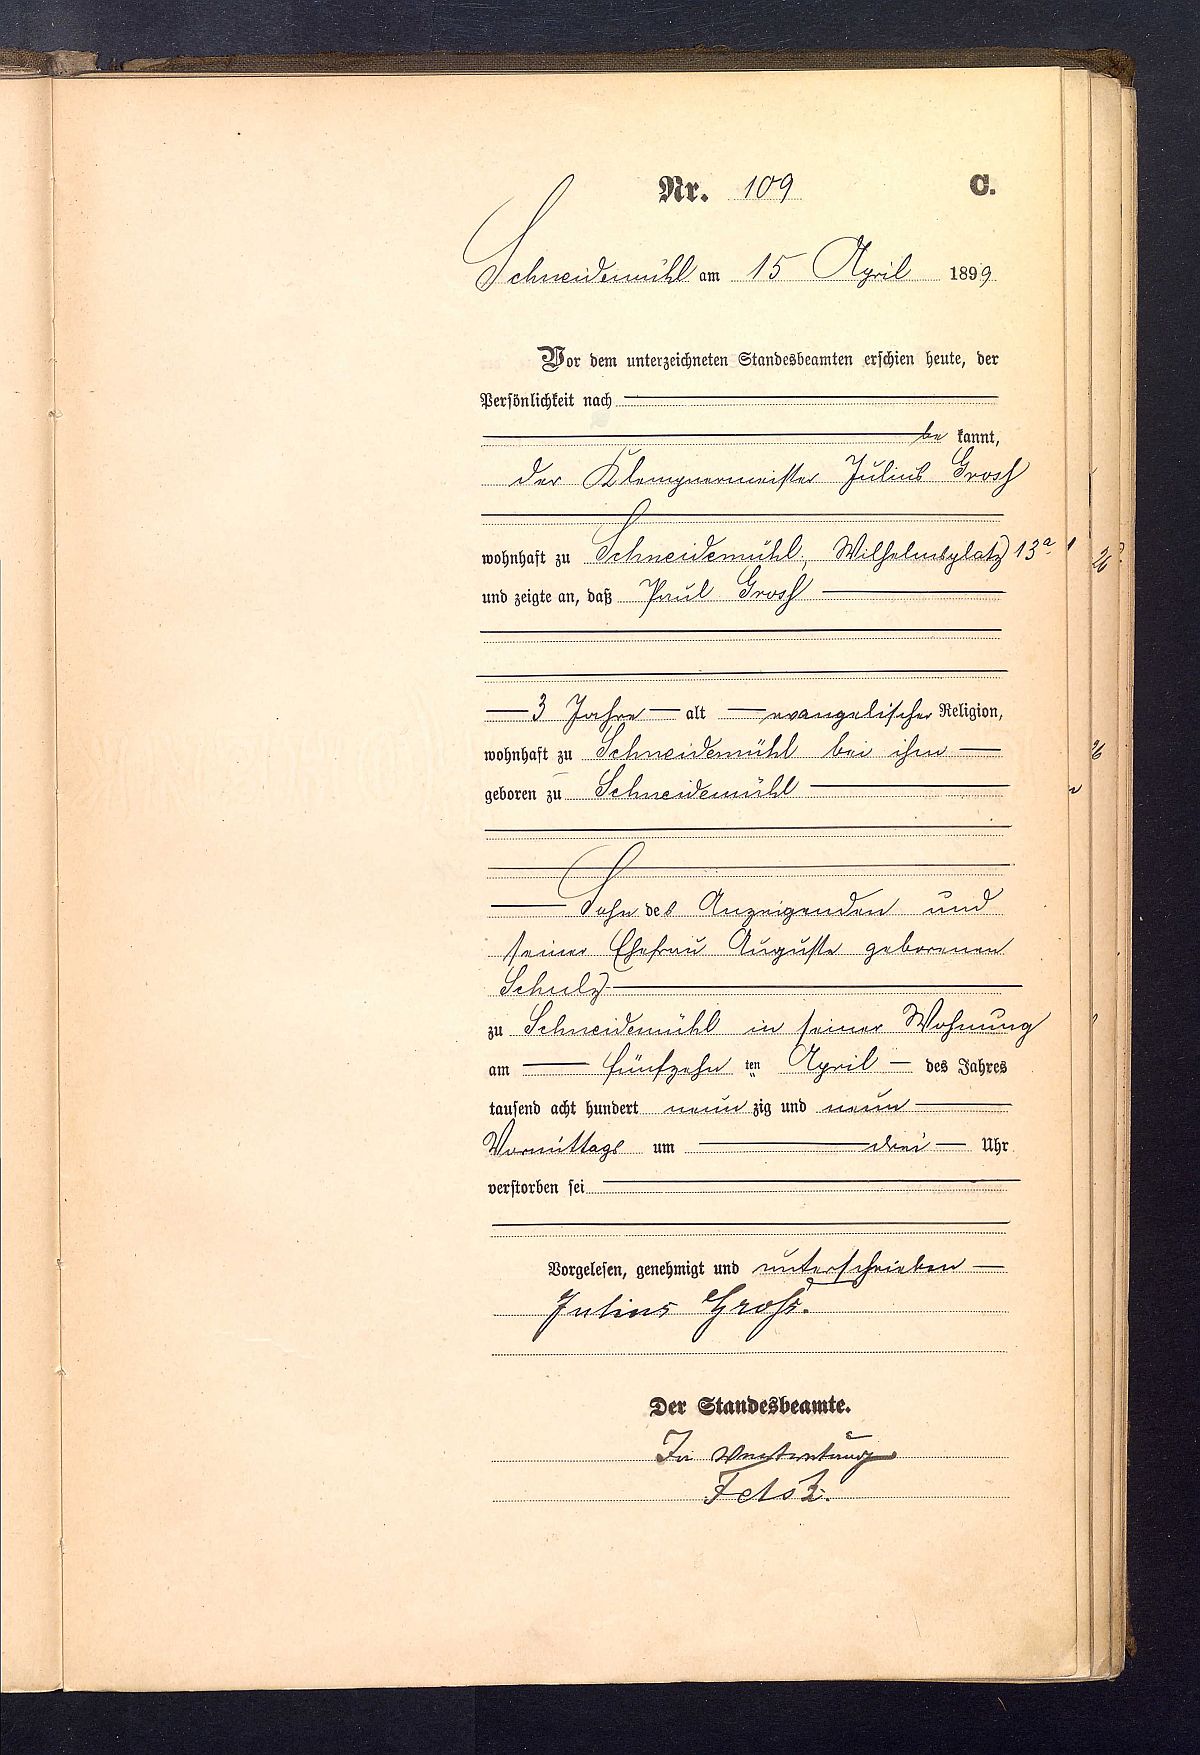 Nr. 109 C.
Schneidemühl am 15 April 1899
Vor dem unterzeichneten Standesbeamten erschien heute, der
Persönlichkeit nach
be kannt,
der Klempnermeister Julius Groß
wohnhaft zu Schneidemühl, Wilhelmsplatz 13a
und zeigte an, daß Paul Groß
3 Jahre alt evangelischer Religion,
wohnhaft zu Schneidemühl bei ihm
geboren zu Schneidemühl
Sohn des Anzeigenden und
seiner Ehefrau Auguste geborenen
Schulz
zu Schneidemühl in seiner Wohnung
am fünfzehn ten April des Jahres
tausend acht hundert neun zig und neun
Vormittags um drei Uhr
verstorben sei
Vorgelesen, genehmigt und unterschrieben
Julius Groß.
Der Standesbeamte.
In Vertretung